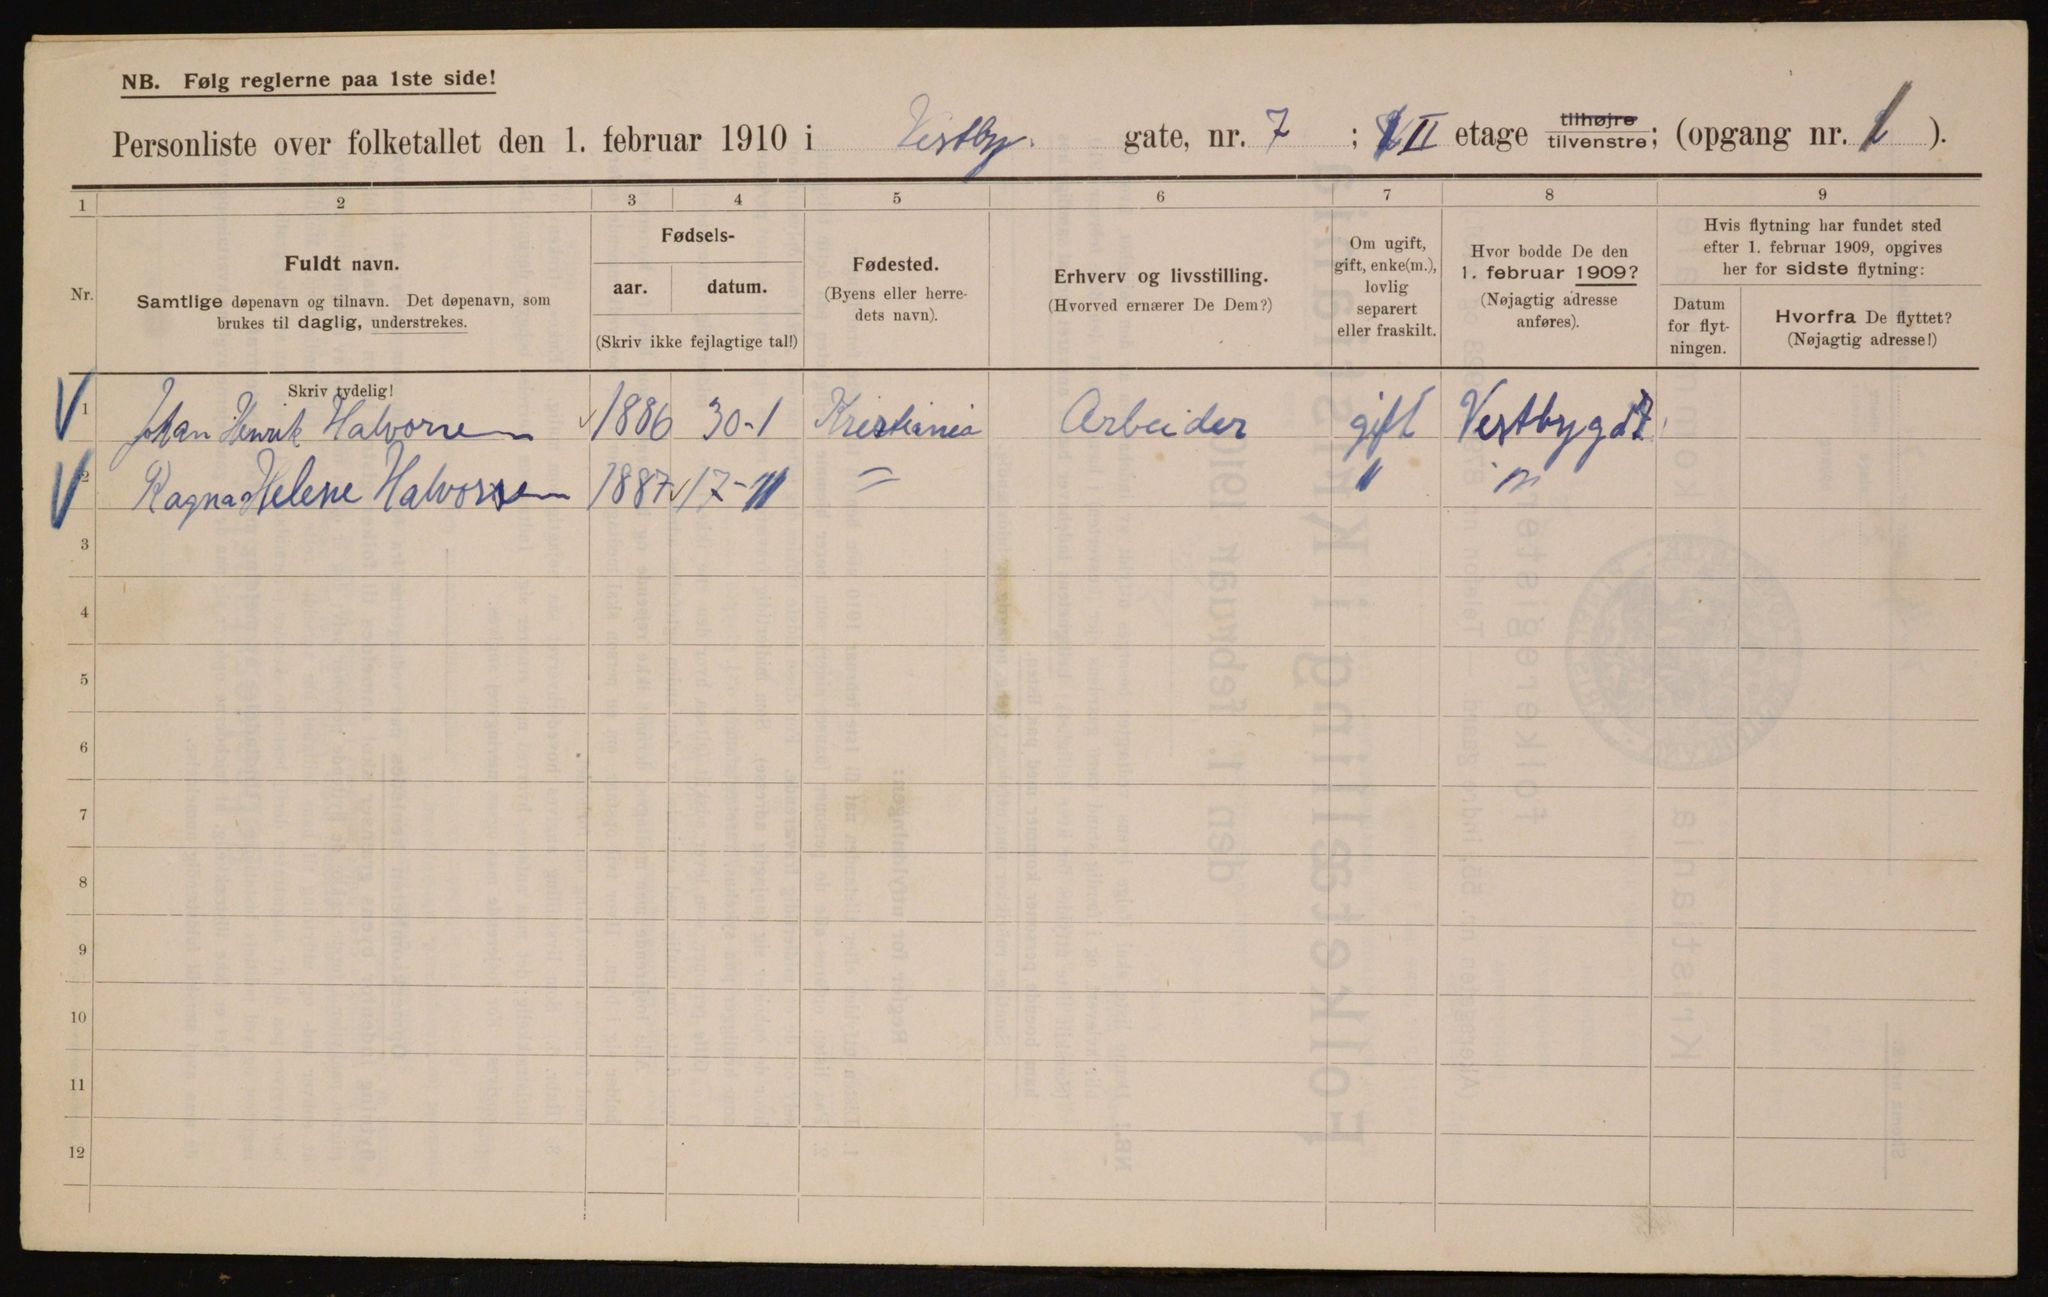 NB. Følg reglerne paa 1ste side!
Personliste over folketallet den 1. februar 1910 i Vestby. gate, nr. 7 ; II etage tilhøjre tilvenstre; (opgang nr. 1 ).
1 2 3 4 5 6 7 8 9
Nr.
Fuldt navn.
Samtlige døpenavn og tilnavn. Det døpenavn, som
brukes til daglig, understrekes.
Fødsels-
aar. datum.
(Skriv ikke fejlagtige tal!)
Fødested.
(Byens eller herre-
dets navn).
Erhverv og livsstilling.
(Hvorved ernærer De Dem?)
Om ugift,
gift, enke(m.),
lovlig
separert
eller fraskilt.
Hvor bodde De den
1. februar 1909?
(Nøjagtig adresse
anføres).
Hvis flytning har fundet sted
efter 1. februar 1909, opgives
her for sidste flytning:
Datum
for flyt-
ningen.
Hvorfra De flyttet?
(Nøjagtig adresse!)
Skriv tydelig!
1 Johan Henrik Halvorsen 1886 30-1 Kristiania Arbeider gift Vestbygd 7
2 Ragna Helene Halvorsen 1887 17- = " "
3
4
5
6
7
8
9
10
11
12